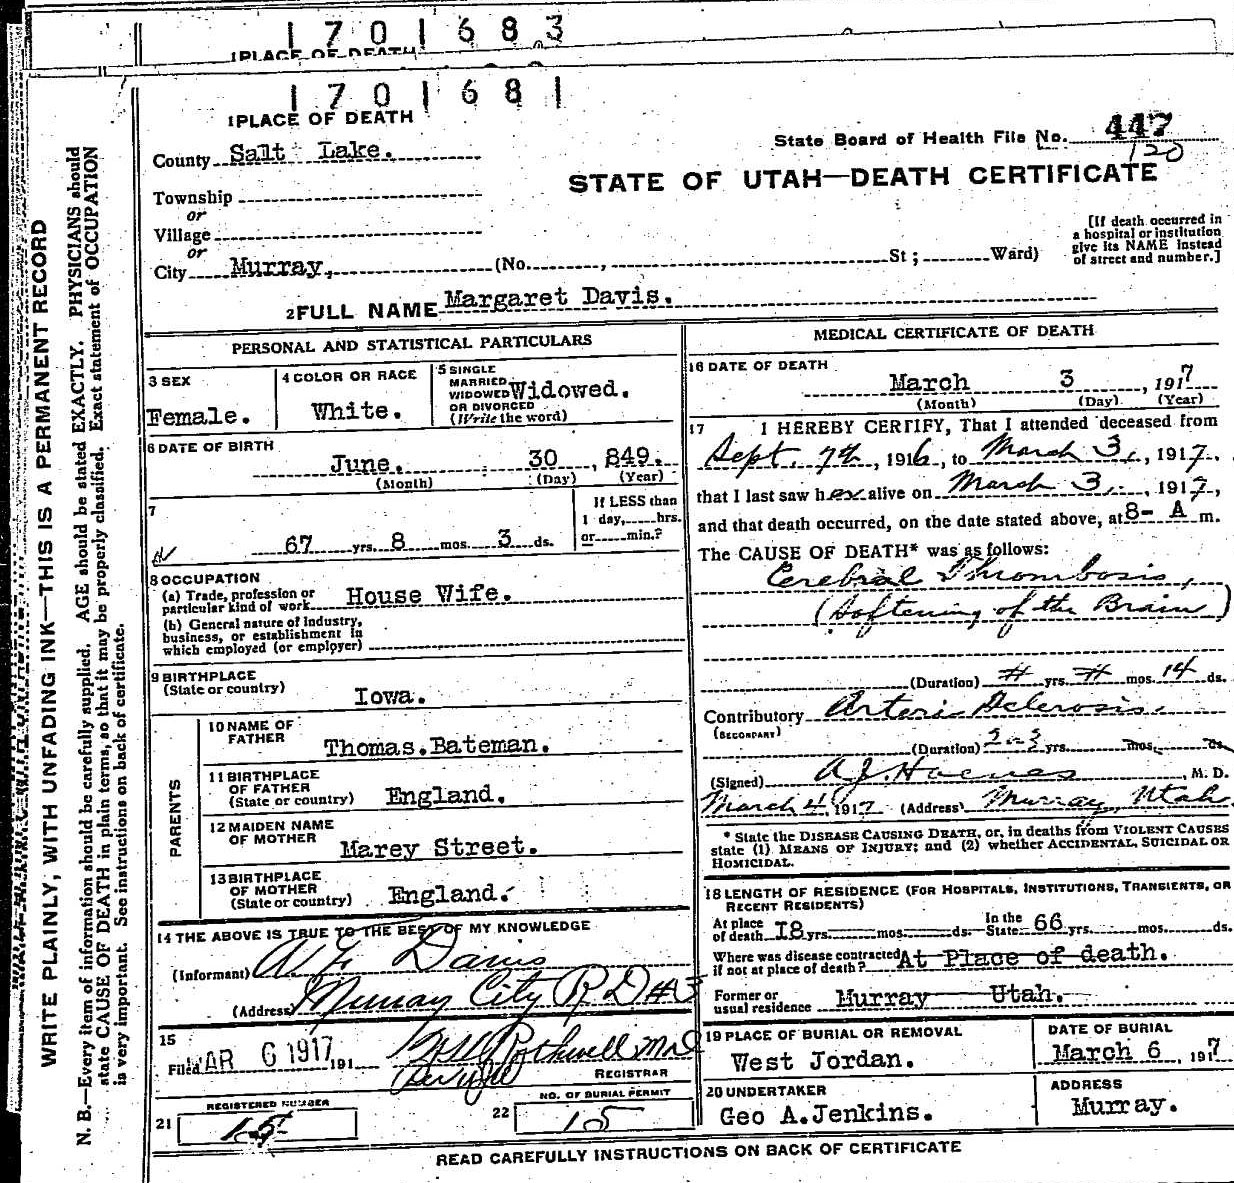 1701683
1 PLACE OF DEATH
1701681
1 PLACE OF DEATH
County Salt Lake.
State Board of Health File No. 447
120
STATE OF UTAH—DEATH CERTIFICATE
Township
or
Village
or
City Murray, (No. , St ; Ward)
[If death occurred in
a hospital or institution
give its NAME instead
of street and number.]
2 FULL NAME Margaret Davis.
PERSONAL AND STATISTICAL PARTICULARS
3 SEX
Female.
4 COLOR OR RACE
White.
5 SINGLE
MARRIED
WIDOWED Widowed.
OR DIVORCED
(Write the word)
6 DATE OF BIRTH
June. 30 , 849.
(Month) (Day) (Year)
7
67 yrs. 8 mos. 3 ds.
If LESS than
1 day, hrs.
or min.?
8 OCCUPATION
(a) Trade, profession or
particular kind of work House Wife.
(b) General nature of Industry,
business, or establishment in
which employed (or employer)
9 BIRTHPLACE
(State or country) Iowa.
PARENTS
10 NAME OF
FATHER Thomas.Bateman.
11 BIRTHPLACE
OF FATHER
(State or country) England.
12 MAIDEN NAME
OF MOTHER Marey Street.
13 BIRTHPLACE
OF MOTHER
(State or country) England.
14 THE ABOVE IS TRUE TO THE BEST OF MY KNOWLEDGE
(Informant) Davis
(Address) Murray City R D #3
15
Filed MAR 6 1917 191
Rothwell
REGISTRAR
REGISTERED NUMBER
21 15
NO. OF BURIAL PERMIT
22 15
MEDICAL CERTIFICATE OF DEATH
16 DATE OF DEATH
March 3 , 1917
(Month) (Day) (Year)
17 I HEREBY CERTIFY, That I attended deceased from
Sept. 7th , 1916, to March 3, , 1917,
that I last saw her alive on March 3, , 1917,
and that death occurred, on the date stated above, at 8- A m.
The CAUSE OF DEATH* was as follows:
Cerebral Thrombosis,
(Softening of the Brain)
(Duration) # yrs. # mos. 14 ds.
Contributory Arteri Sclerosis.
(SECONDARY)
(Duration) 2-3 yrs. mos. ds.
(Signed) , M. D.
March 4, 1917 (Address) Murray, Utah
* State the DISEASE CAUSING DEATH, or, in deaths from VIOLENT CAUSES
state (1) MEANS OF INJURY; and (2) whether ACCIDENTAL, SUICIDAL OR
HOMICIDAL.
18 LENGTH OF RESIDENCE (FOR HOSPITALS, INSTITUTIONS, TRANSIENTS, OR
RECENT RESIDENTS)
At place
of death I8 yrs. mos. ds.
In the
State 66 yrs. mos. ds.
Where was disease contracted
if not at place of death? At Place of death.
Former or
usual residence Murray Utah.
19 PLACE OF BURIAL OR REMOVAL
West Jordan.
DATE OF BURIAL
March 6 , 1917
20 UNDERTAKER
Geo A.Jenkins.
ADDRESS
Murray.
READ CAREFULLY INSTRUCTIONS ON BACK OF CERTIFICATE
WRITE PLAINLY, WITH UNFADING INK—THIS IS A PERMANENT RECORD
N. B.—Every item of information should be carefully supplied. AGE should be stated EXACTLY. PHYSICIANS should
state CAUSE OF DEATH in plain terms, so that it may be properly classified. Exact statement of OCCUPATION
is very important. See instructions on back of certificate.